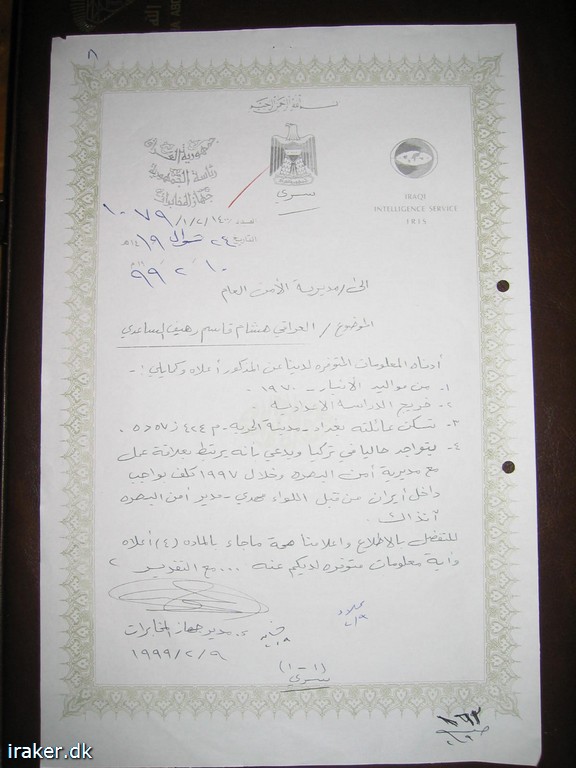 ٨
بسم الله الرحمن الرحيم
جمهورية العراق
رئاسة الجمهورية
جهاز المخابرات
سري
IRAQI
INTELLIGENCE SERVICE
IRIS
العدد/١٤/٢/١/١٠٧٩
التاريخ ٢٤ شوال ١٤١٩هـ
١٠ ٢ ٩٩
الى/مديرية الأمن العام
الموضوع/ العراقي هشام قاسم رهيف الساعدي
أدناه المعلومات المتوفره لدينا عن المذكور أعلاه وكمايلي :-
١. من مواليد الأنبار - ١٩٧٠
٢- خريج الدراسة الأعدادية .
٣. تسكن عائلته بغداد - مدينة الحرية - م ٤٢٤ ز ٥٧ د ٥ .
٤- يتواجد حاليا في تركيا ويدعى بانه يرتبط بعلاقة عمل
مع مديرية أمن البصره وخلال ١٩٩٧ كلف بواجب
داخل أيران من قبل اللواء مهدي - مدير أمن البصره
آنذاك .
للتفضل بالاطلاع واعلامنا صحة ماجاء بالماده (٤) أعلاه
وأية معلومات متوفره لديكم عنه ... مع التقدير
ع. مدير جهاز المخابرات
١٩٩٩/٢/٩
(١-١)
سري
iraker.dk